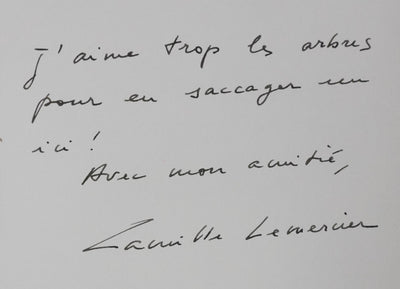 J'aime trop les arbres
pour en saccager un
ici !
Avec mon amitié,
Camille Lemercier